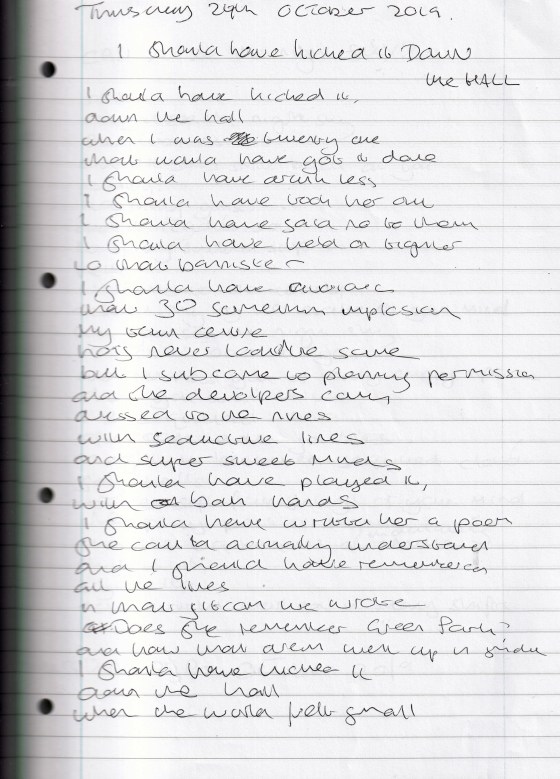 Thursday 24th October 2019.
I should have kicked it Down
the HALL
I should have kicked it,
down the hall
when I was twenty one
that would have got it done
I should have drunk less
I should have took her out
I should have said no to them
I should have held on tighter
to that bannister
I should have avoided
that 30 something implosion
My town centre
hots never look the same
but I subcame to planning permission
and the develpers came
dressed to the nines
with seductive lines
and super sweet minds
I should have played it,
with both hands
I should have written her a poem
she could actually understand
and I should have remembered
all the lines
in that sitcom we wrote
Does she remember Green Park?
and how that dream went up in
I should have kicked it
down the hall
when the world felt small